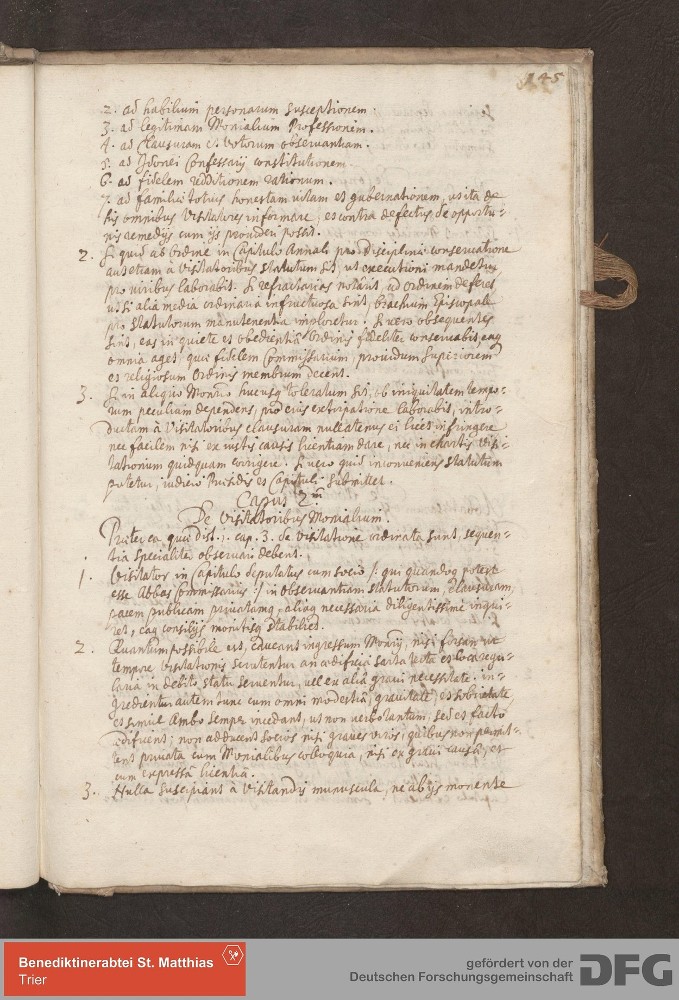 145
2. ad habilium personarum susceptionem.
3. ad legitimam Monialium Professionem.
4. ad Clausuram et Votorum observantiam.
5. ad Idonei Confessarij constitutionem.
6. ad fidelem redditionem rationum.
7. ad familiae totius honestam vitam et gubernationem, ut ita de
his omnibus Visitatores informare, et contra defectus de opportu=
nis remedijs cum ijs provideri possit.
2. Si quid ab Ordine in Capitulo Annali pro disciplinae conservatione
aut etiam à Visitatoribus statutum sit, ut executioni mandetur
pro viribus laborabit. Si refractarias notârit, ad Ordinem deferet
ut si alia media ordinaria infructuosa sint, brachium Episcopale
pro statutorum manutenentia imploretur. Si vero obsequentes
sint, eas in quiete et obedientia Ordinis fideliter conservabit, eaq
omnia aget quae fidelem Commissarium, providum Superiorem
et religiosum Ordinis membrum decent.
3. Si in aliquo Monrio hucusq toleratum sit, ob iniquitatem tempo=
rum peculium dependens, pro eius extirpatione laborabit, intro=
ductam à Visitatoribus clausuram nullatenus ei licet infringere
nec facilem nisi ex iustis causis licentiam dare, nec in chartis Visi=
tationum quidquam corrigere. Si vero quid inconveniens statutum
putetur, iudicio Praesidis et Capituli submittet.
Caput 2m
De Visitatoribus Monialium.
Praeter ea quae dist. 1. cap. 3. de visitatione ordinata sunt, sequen=
tia specialiter observari debent.
1. Visitator in Capitulo deputatus cum socio /: qui quandoq poterit
esse Abbas Commissarius :/ in observantiam statutorum, Clausuram,
pacem publicam privatamq, aliaq necessaria diligentissime inqui=
ret, eaq consilijs monitisq stabiliet.
2. Quantum possibile est, caveant ingressum Monrij, nisi forsan ut
tempore Visitationis scrutentur an aedificia sarta tecta et loca regu=
laria in debito statu serventur, vel ex alia gravi necessitate; in=
gredientur autem tunc cum omni modestia, gravitate, et sobrietate
et simul Ambo semper incedant, ut non verbo tantum, sed et facto
aedificent; non adducent socios nisi graves viros, quibus non permit=
tent privata cum Monialibus colloquia, nisi ex gravi causâ, et
cum expressâ licentiâ.
3. Nulla suscipiant à Visitandis munuscula, ne ab ijs monente
Benediktinerabtei St. Matthias
Trier
gefördert von der
Deutschen Forschungsgemeinschaft
DFG